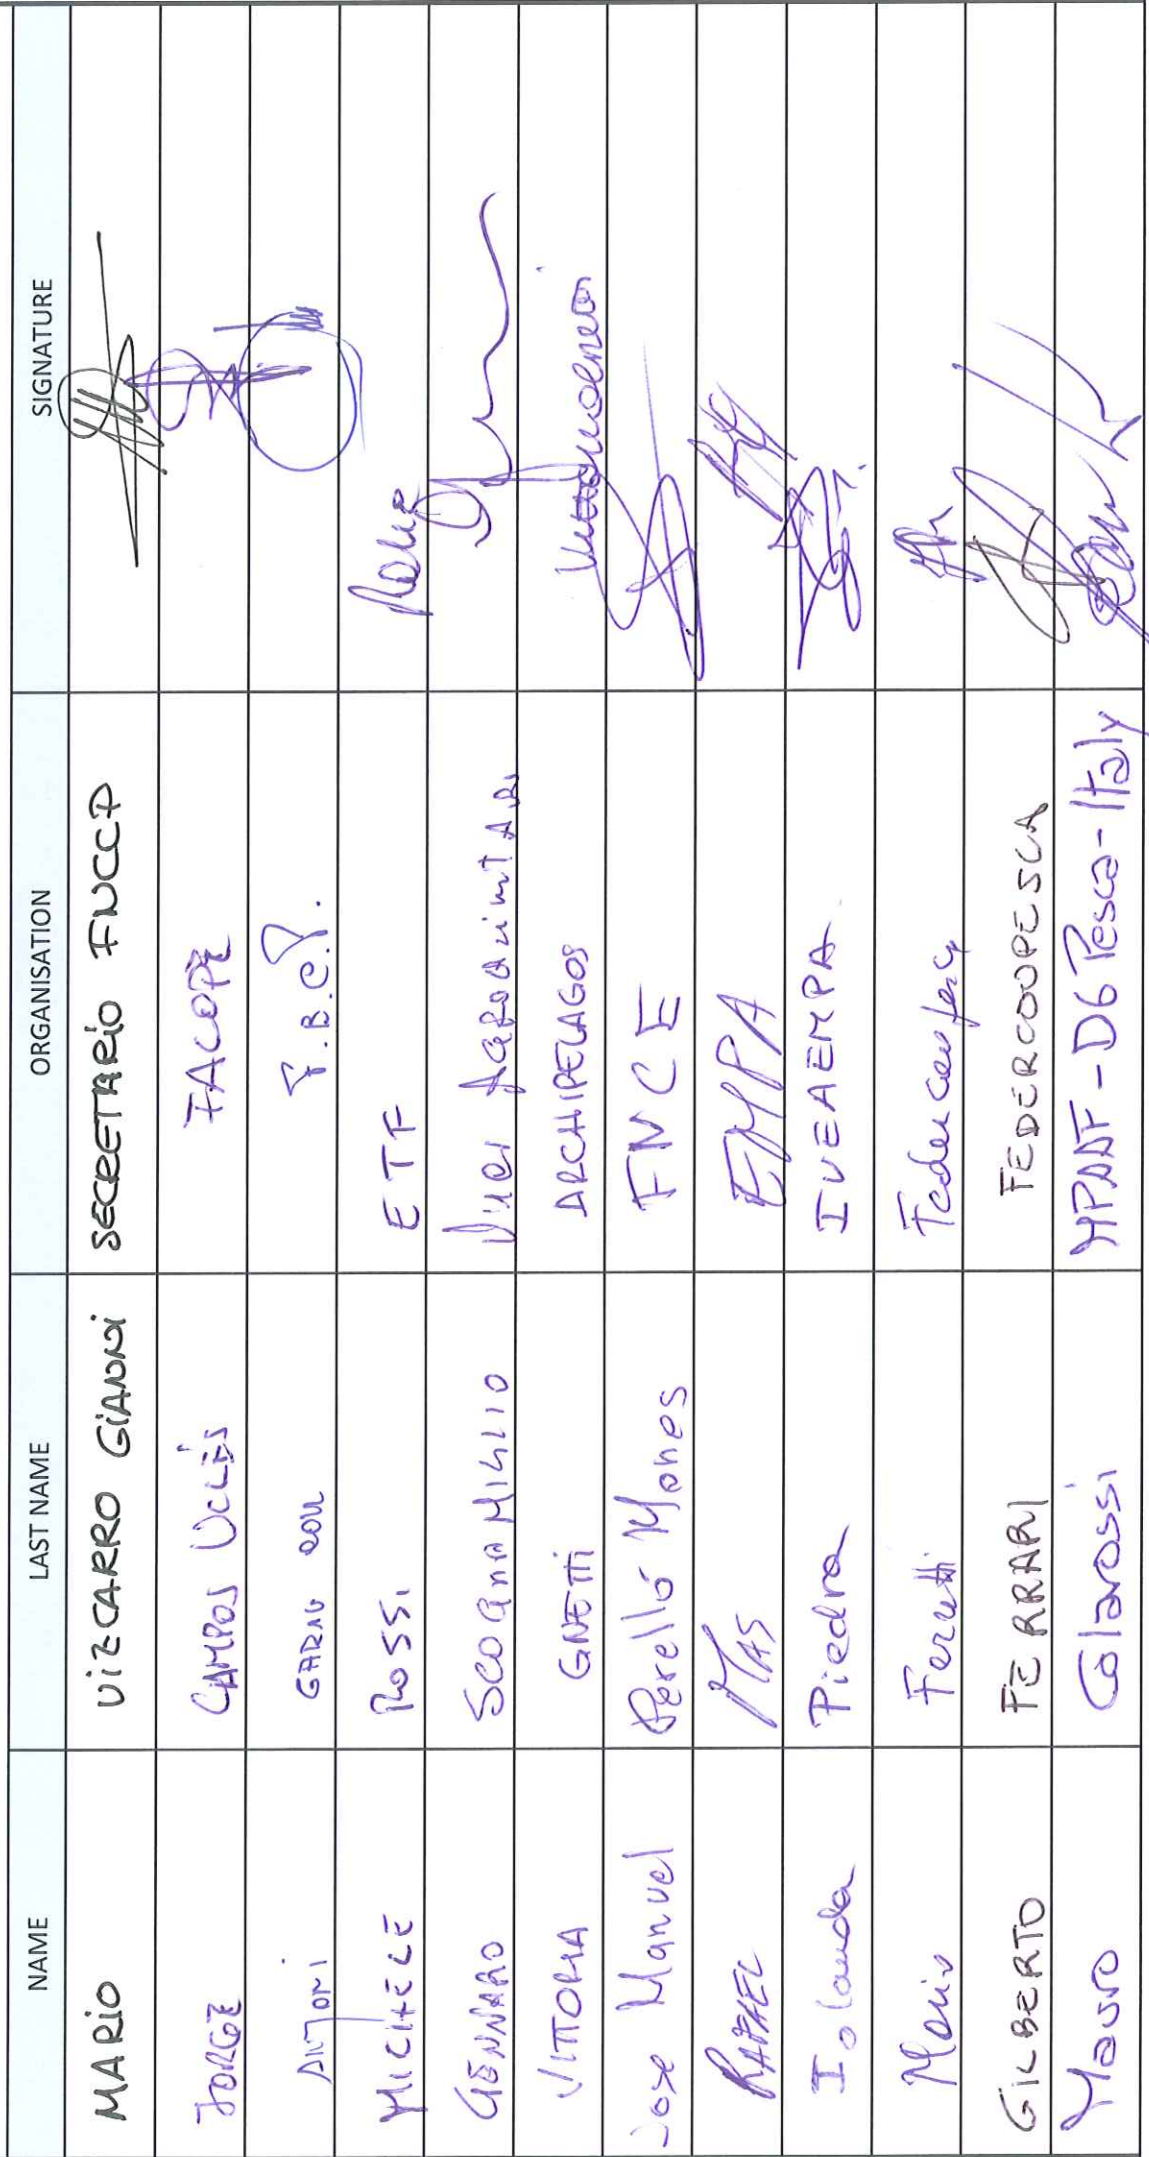 NAME LAST NAME ORGANISATION SIGNATURE
MARIO VIZCARRO GIANNI SECRETARIO FNCCP
JORGE CAMPOS UCLÉS FACOPE
ANTONI GARAU COLL F.B.C.P.
MICHELE ROSSI ETF
GENNARO SCOGNAMIGLIO UNCI AGROALIMENTARE
VITTORIA GNETTI ARCHIPELAGOS
Jose Manuel Perelló Mones FNCE
RAFAEL MAS EMPA
Iolanda Piedra IVEAEMPA
Mario Ferretti Federcoopesca
GILBERTO FERRARI FEDERCOOPESCA
Mauro Colarossi MPAAF-DG Pesca-Italy